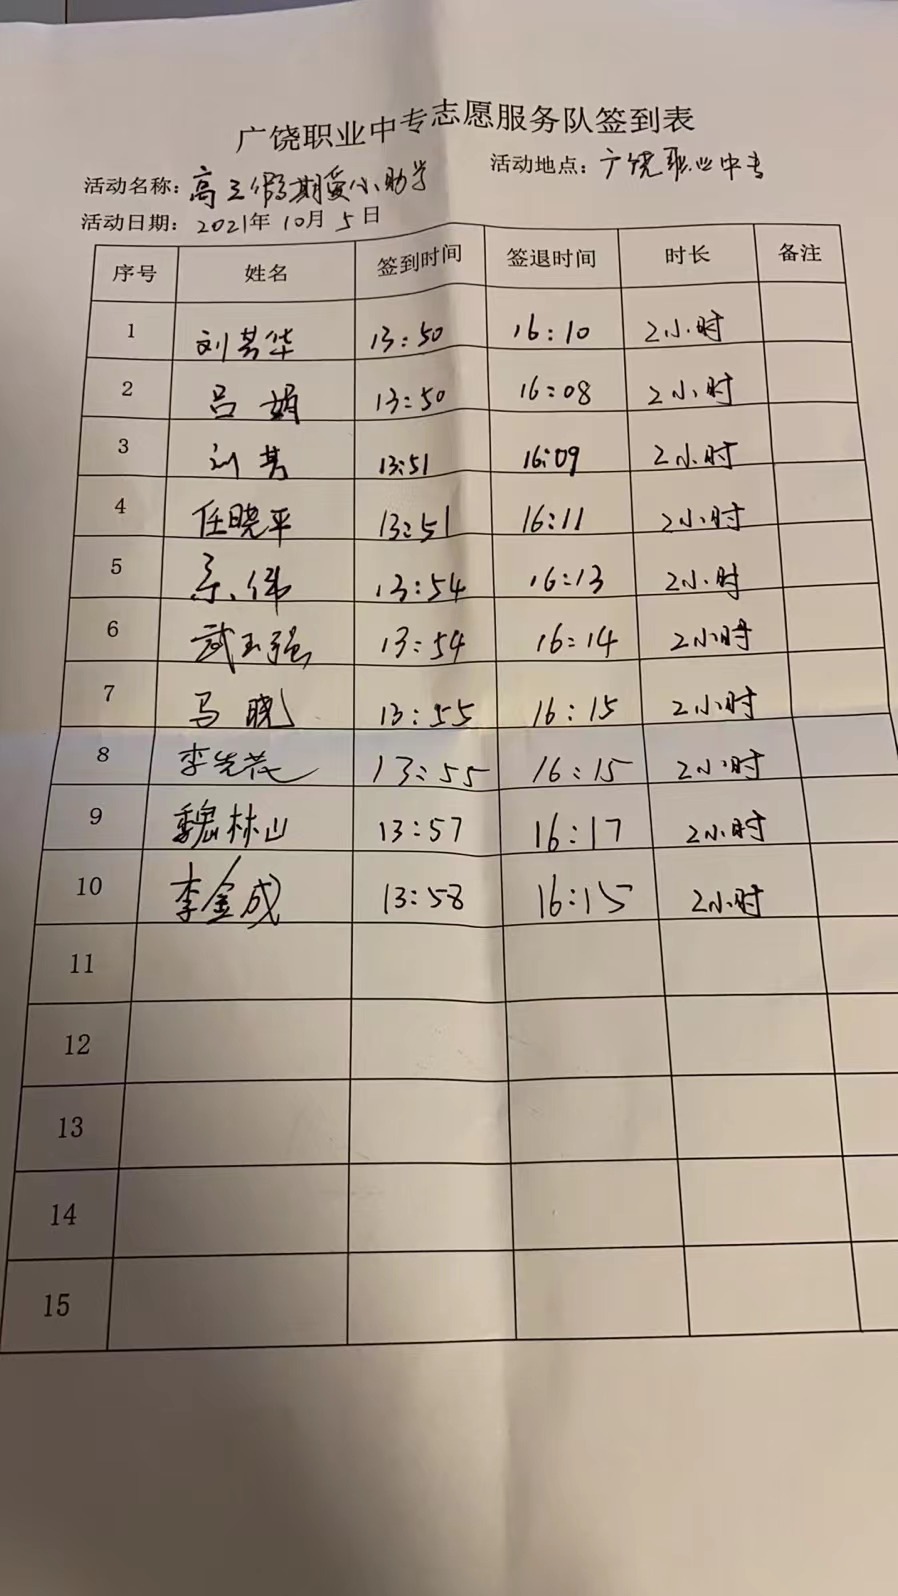 广饶职业中专志愿服务队签到表
活动名称：高三假期爱心助学 活动地点：广饶职业中专
活动日期：2021年10月5日
序号 姓名 签到时间 签退时间 时长 备注
1 刘其华 13:50 16:10 2小时
2 吕娟 13:50 16:08 2小时
3 刘芳 13:51 16:09 2小时
4 任晓平 13:51 16:11 2小时
5 13:54 16:13 2小时
6 武玉强 13:54 16:14 2小时
7 马晓 13:55 16:15 2小时
8 13:55 16:15 2小时
9 魏林山 13:57 16:17 2小时
10 李金成 13:58 16:15 2小时
11
12
13
14
15